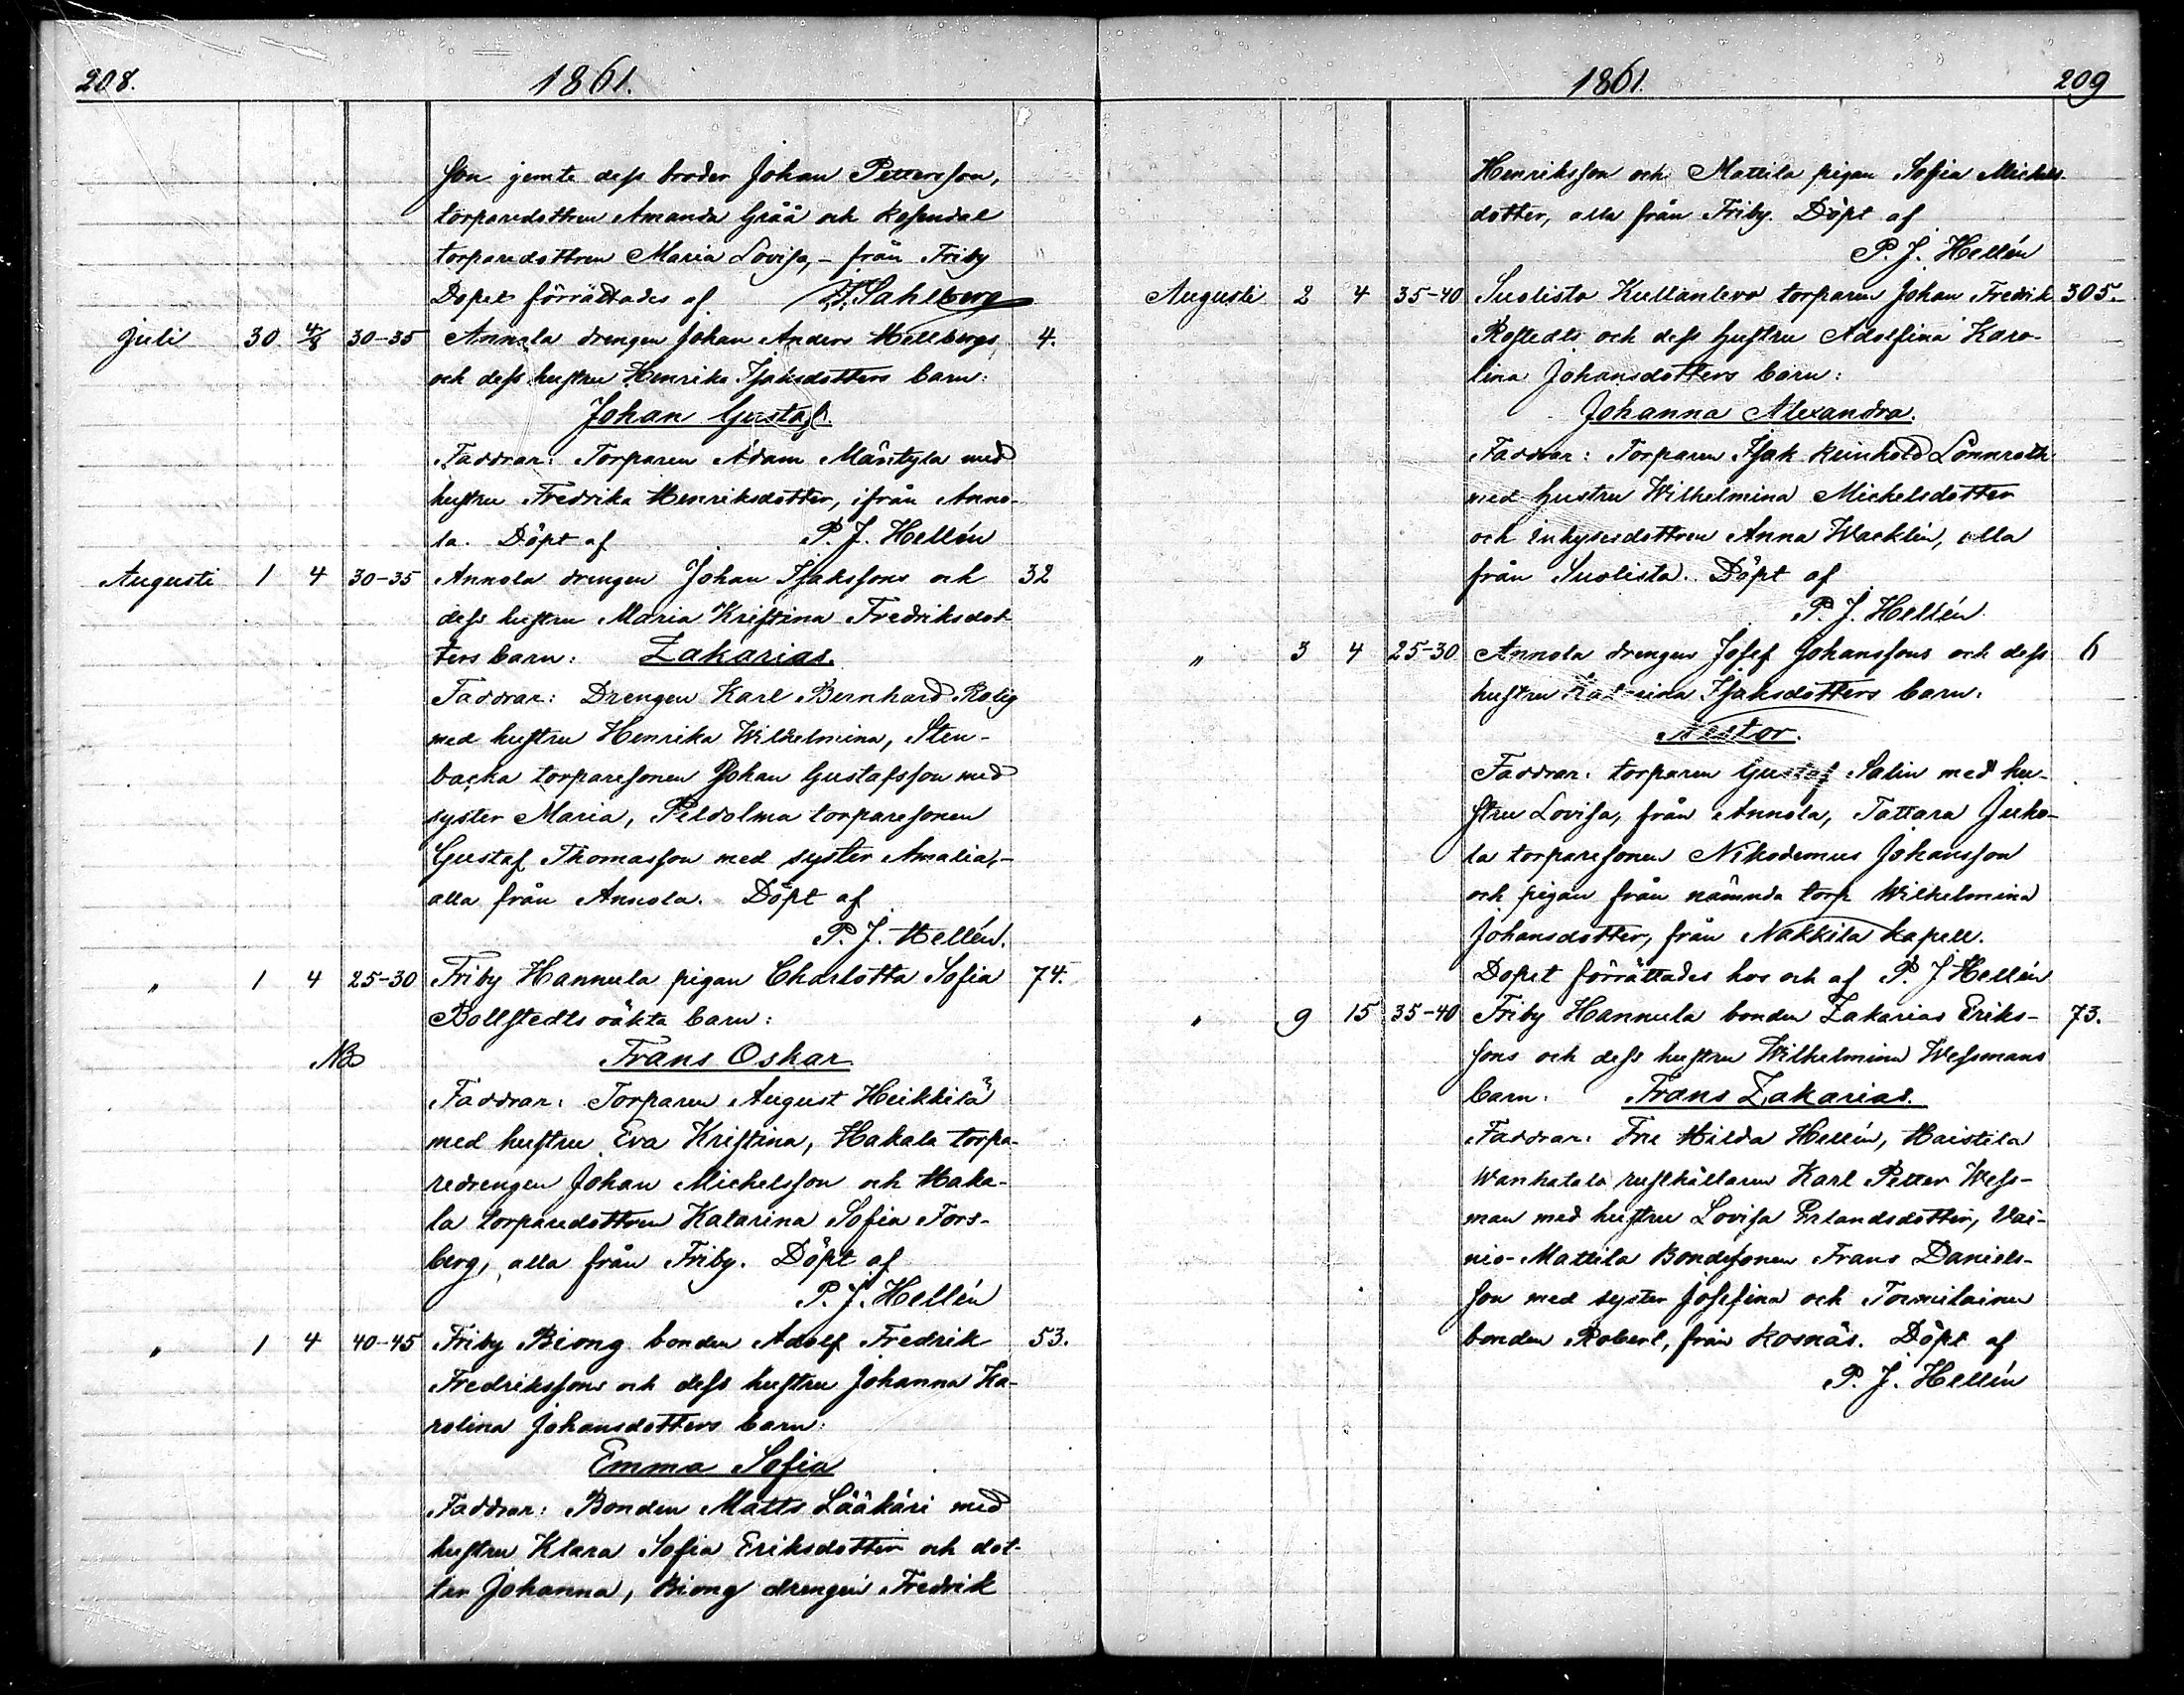 208.
1861.
son jemte dess broder Johan Pettersson,
torparedottren Amanda Gråå och Rosendal
torparedottren Maria Lovisa, – från Friby
Dopet förrättades af Sahlberg
Juli 30 4/8 30–35 Annola drengen Johan Anders Hellbergs 4.
och dess hustru Henrika Isaksdotters barn:
Johan Gustaf.
Faddrar: Torparen Adam Mäntyla med
hustru Fredrika Henriksdotter, ifrån Anno-
la. Döpt af P. J. Hellén
Augusti 1 4 30–35 Annola drengen Johan Isakssons och 32
dess hustru Maria Kristina Fredriksdot-
ters barn: Zakarias.
Faddrar: Drengen Karl Bernhard Rolig
med hustru Henrika Wilhelmina, Sten-
backa torparesonen Johan Gustafsson med
syster Maria, Peldolma torparesonen
Gustaf Thomasson med syster Amalia, –
alla från Annola. Döpt af
P. J. Hellén.
" 1 4 25–30 Friby Hannula pigan Charlotta Sofia 74.
Bollstedts oäkta barn:
NB Frans Oskar
Faddrar: Torparen August Heikkilä
med hustru Eva Kristina, Hakala torpa-
redrengen Johan Michelsson och Haka-
la torparedottren Katarina Sofia Fors-
berg, alla från Friby. Döpt af
P. J. Hellén
" 1 4 40–45 Friby Biong bonden Adolf Fredrik 53.
Fredrikssons och dess hustru Johanna Ka-
rolina Johansdotters barn:
Emma Sofia
Faddrar: Bonden Matts Lääkäri med
hustru Klara Sofia Eriksdotter och dot-
ter Johanna, Biong drengen Fredrik
1861.
209
Henriksson och Mattila pigan Sofia Michels-
dotter, alla från Friby. Döpt af
P. J. Hellén
Augusti 2 4 35–40 Suolisto Kullanlevo torparen Johan Fredrik 305.
Rostedts och dess hustru Adolfina Karo-
lina Johansdotters barn:
Johanna Alexandra.
Faddrar: Torparen Isak Reinhold Lönnroth
med hustru Wilhelmina Michelsdotter
och inhysesdottren Anna Wacklin, alla
från Suolista. Döpt af
P. J. Hellén.
" 3 4 25–30 Annola drengen Josef Johanssons och dess 6
hustru Katarina Isaksdotters barn:
Nestor.
Faddrar: torparen Gustaf Salin med hu-
stru Lovisa, från Annola, Tattara Juho-
la torparesonen Nikodemus Johansson
och pigan från nämnda torp Wilhelmina
Johansdotter, från Nakkila kapell.
Dopet förrättades hos och af P. J. Hellén
" 9 15 35–40 Friby Hannula bonden Zakarias Eriks- 73.
sons och dess hustru Wilhelmina Wessmans
barn: Frans Zakarias.
Faddrar: Frk Hilda Hellén, Haistila
Wanhatalo rusthållaren Karl Petter Wess-
man med hustru Lovisa Erlandsdotter, Vai-
nio-Mattila Bondesonen Frans Daniels-
son med syster Josefina och Tormilainen
bonden Robert, från Kosnäs. Döpt af
P. J. Hellén